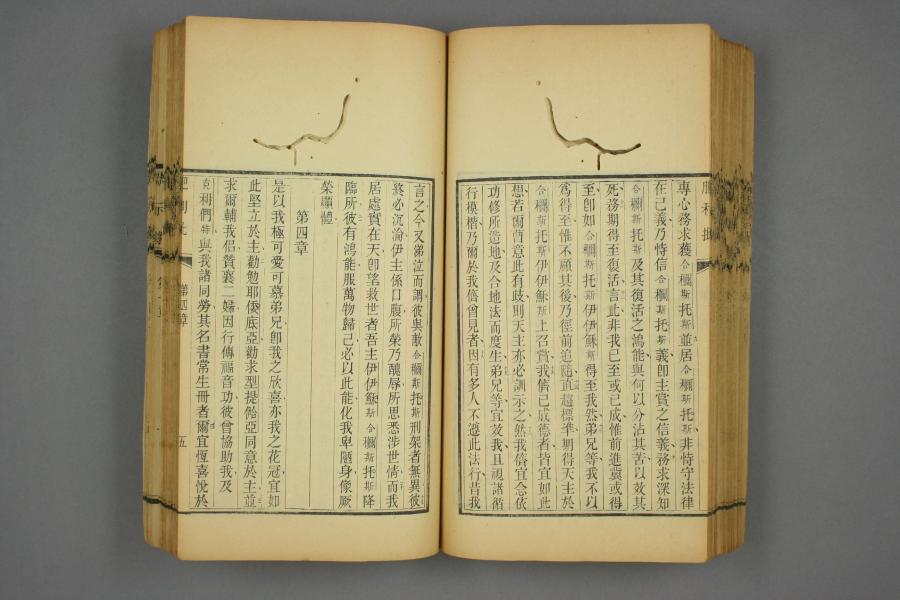 專心務求獲合穪斯托斯並居合穪斯托斯非恃守法律
在己義乃恃信合穪斯托斯義卽主賞之信義務求深知
合穪斯托斯及其復活之鴻能與何以分沾其苦以效其
死務期得至復活言此非我已至或已成惟前進冀或得
至卽如合穪斯托斯伊伊穌斯得至我然弟兄等我不以
爲得至惟不顧其後乃徑前追隨直趨標準期得天主於
合穪斯托斯伊伊穌斯上召賞我儕已成德者皆宜如此
想若爾曹意此有歧則天主亦必訓示之然我儕宜念依
功修所造地及合地法而度生弟兄等宜效我且視諸循
行模楷乃爾於我儕曾見者因有多人不遵此法行昔我
言之今又弟泣而謂彼與敵合穪斯托斯刑架者無異彼
終必沉淪伊主係口腹所榮乃醜辱所思悉涉世情而我
居處實在天卽望救世者吾主伊伊穌斯合穪斯托斯降
臨所彼有鴻能服萬物歸己必以此能化我卑陋身像厥
榮顯體
第四章
是以我極可愛可慕弟兄卽我之欣喜亦我之花冠宜如
此堅立於主勸勉耶倭底亞勸求型提嗋亞同意於主並
求爾輔我侶贊襄二婦因行傳福音功彼曾協助我及
克利們特與我諸同勞其名書常生冊者爾宜恆喜悅於
第四章
五